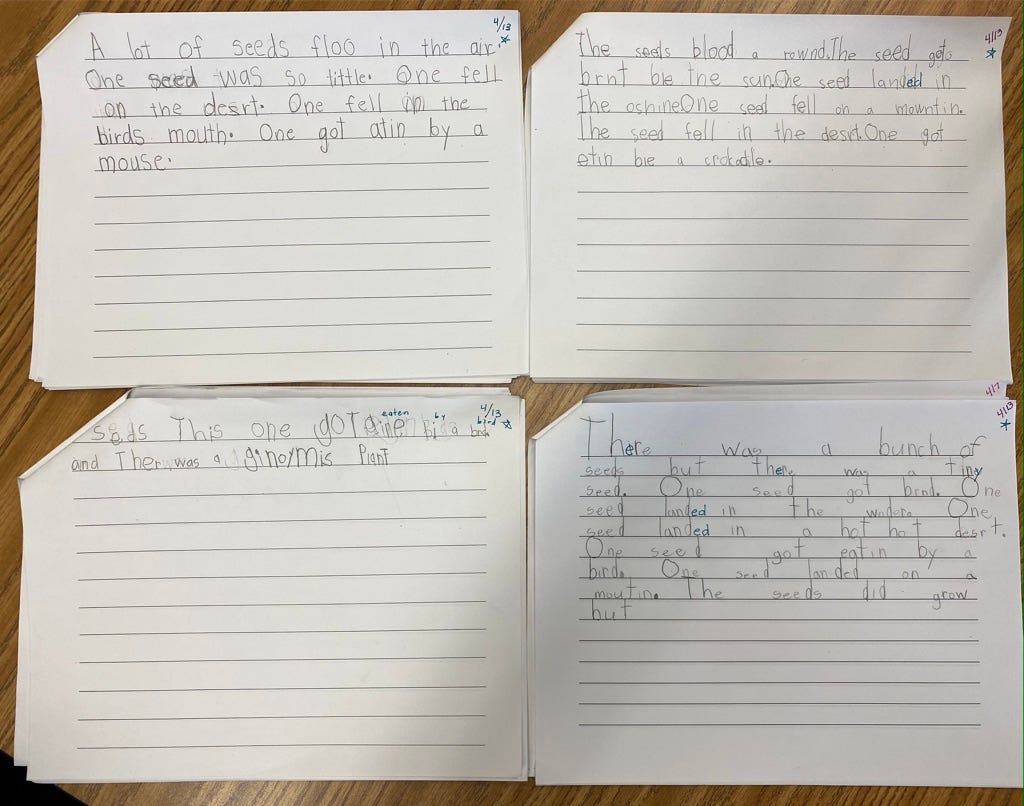 4/13
A lot of seeds floo in the air.
One seed was so little. One fell
on the desrt. One fell in the
birds mouth. One got atin by a
mouse.
4/13
The seeds blood a rownd.The seed gets
brnt bie the sun.One seed landed in
the oshine.One seed fell on a mowntin.
The seed fell in the desrt.One got
etin bie a crokadile.
4/13
eaten by bird
seds This one goT bi a
and Ther was a ginormis Plant
4/7
4/13
There was a bunch of
seeds but there was a tiny
seed. One seed got brnd. One
seed landed in the woder. One
seed landed in a hot hot desrt.
One seed got eatin by a
bird. One seed landed on a
moutin. The seeds did grow
but